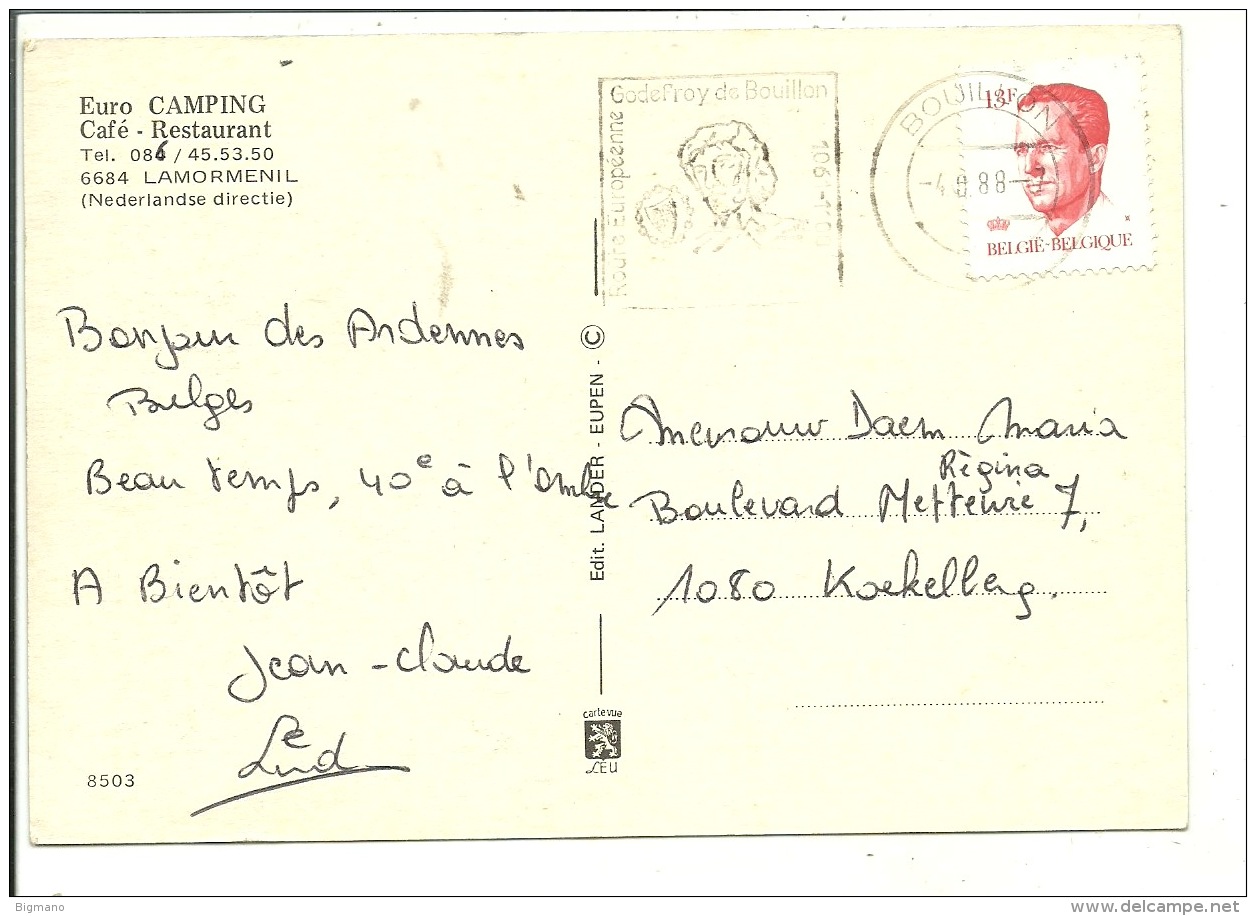 Euro CAMPING
Café - Restaurant
Tel. 086 / 45.53.50
6684 LAMORMENIL
(Nederlandse directie)
Bonjour des Ardennes
Belges
Beau temps, 40° à l'ombre
A Bientôt
Jean-Claude
8503
Edit. LANDER - EUPEN - ©
carte vue
LEU
Godefroy de Bouillon
Route Européenne
BOUILLON
88
13F
BELGIË-BELGIQUE
Daem Maria
Règina
Boulevard 7,
1080 Koekelberg.
Bigmano
www.delcampe.net